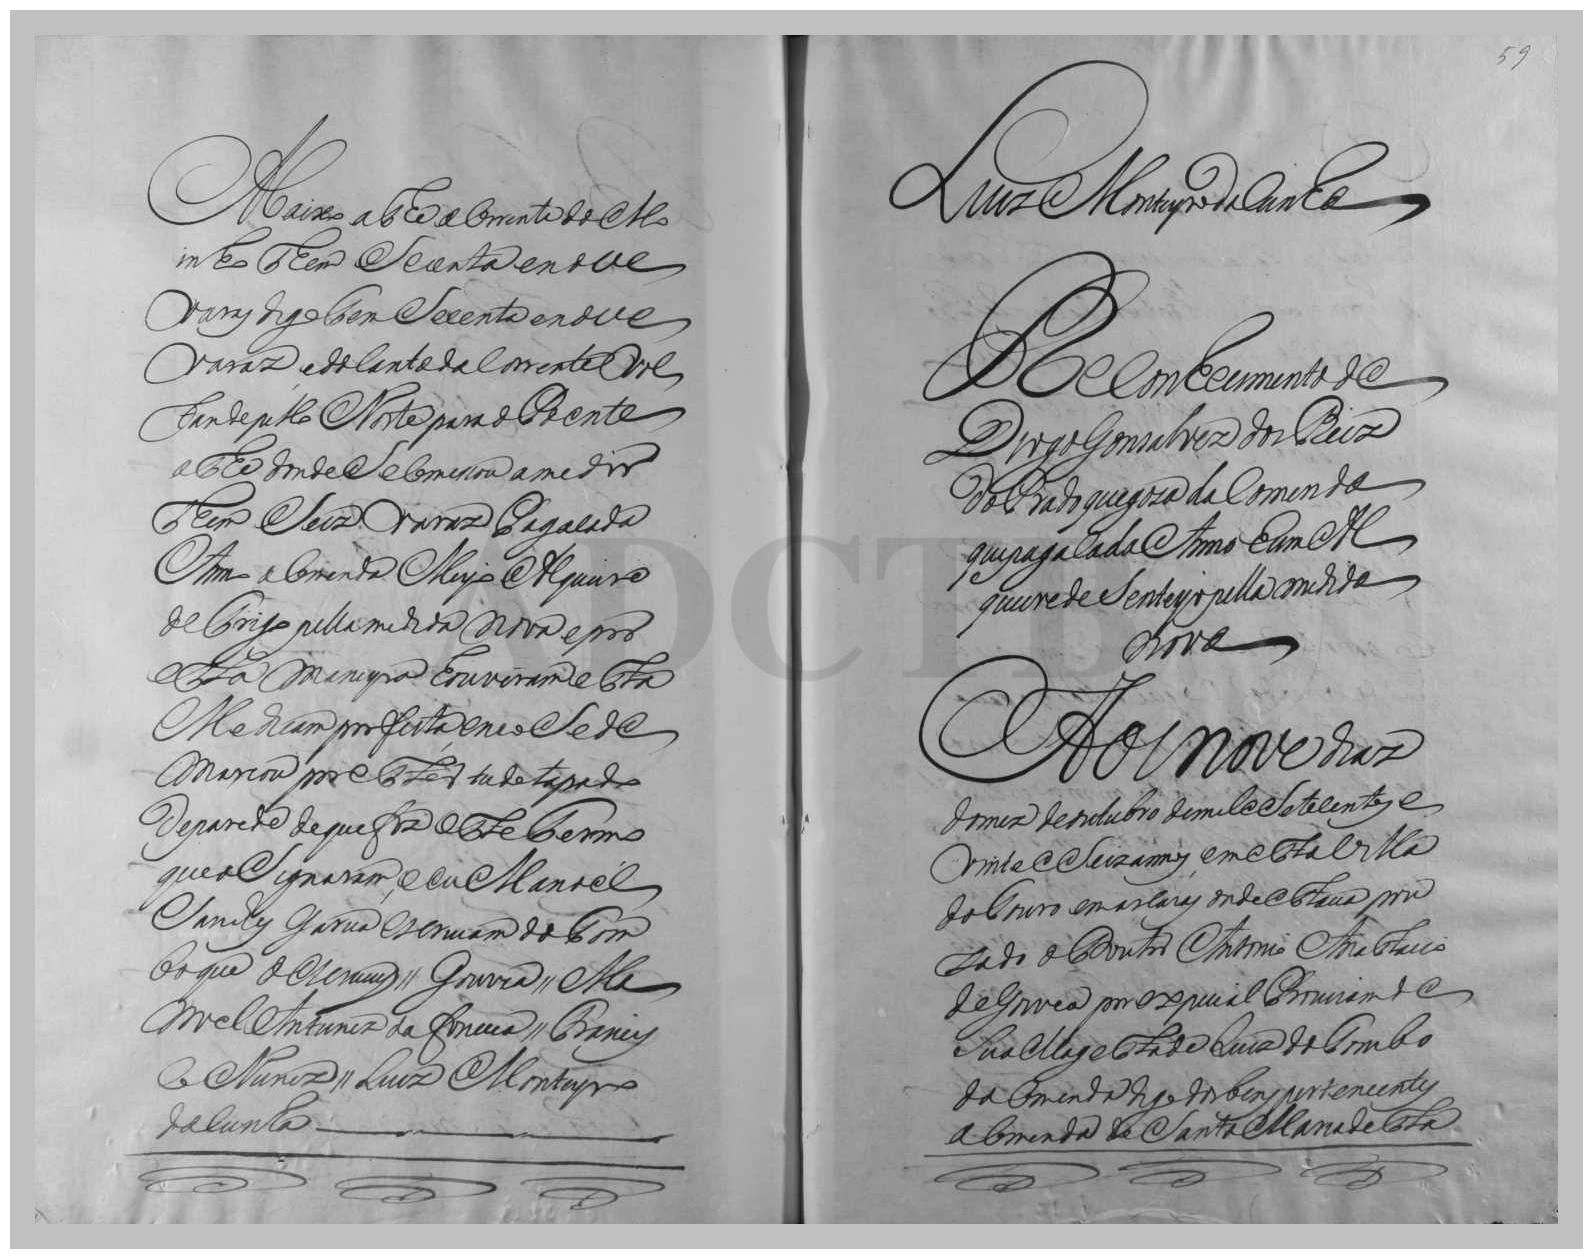 Abaixo athe a Corrente do Mo
inho them Secenta e nove
varas digo tem Secenta e nove
varaz, e do Canto da Corrente vol
tando pello Norte para o Poente
athe donde Se Comesou a medir
them Seiz varaz Paga cada
Anno a Comenda Meyo Alqueire
de trigo pella medida nova e por
esta maneyra houveram esta
Mediçam por feita, e nao Se de
marcou por estar tudo tapado
de parede de que fiz este termo
que aSignaram, e eu Manoel
Sanches Garcia escrivam do Tom
bo que o escrevy // Gouvea // Ma
noel Antunez da fonceca // Francis
co Nunez // Luiz Monteyro
da Cunha
59
Luiz Monteyro da Cunha
ReConhecimento de
Diogo Gonsalvez dos Reiz
do Prado que goza da Comenda
que paga Cada Anno hum Al
queire de Senteyo pella medida
nova
Aos nove diaz
do mez de outubro de mil e Setecentos e
vinte e Seiz annos, em esta Villa
do Touro em as Cazas onde estava pou
zado o Doutor Antonio Anastacio
de Gouvea por expecial Provizam de
Sua Magestade Juiz do Tombo
da Comenda digo dos bens pertencentes
a Comenda de Santa Maria desta
ADCTB